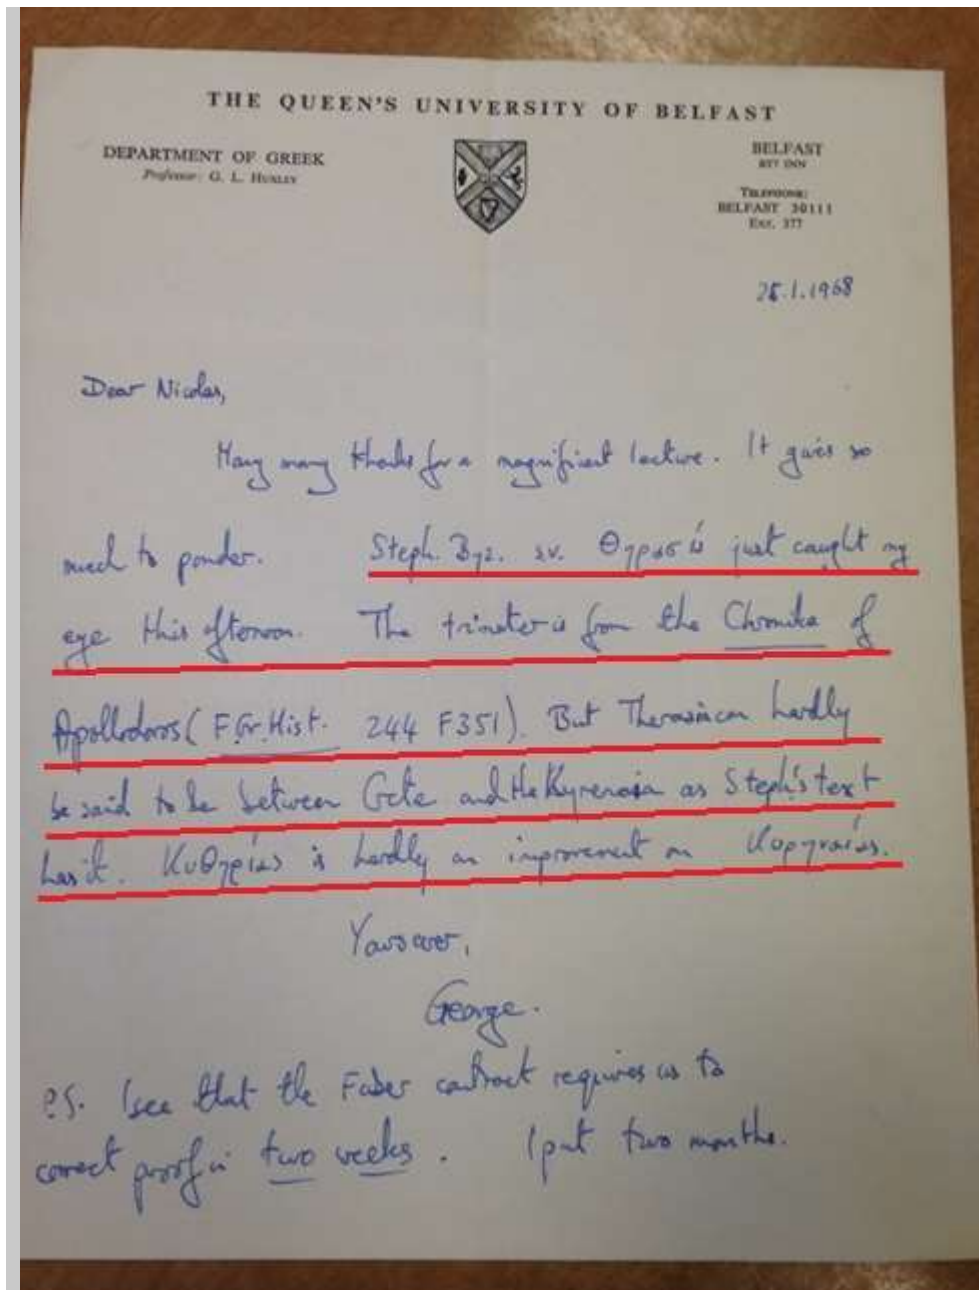 THE QUEEN'S UNIVERSITY OF BELFAST
DEPARTMENT OF GREEK
Professor: G. L. HUXLEY
BELFAST
BT7 1NN
TELEPHONE:
BELFAST 30111
EXT. 377
25.1.1968
Dear Nicolas,
Many many thanks for a magnificent lecture. It gives so
much to ponder. Steph. Byz. s.v. is just caught my
eye this afternoon. The trimeter is from the Chronika of
Apollodoros (F.Gr.Hist. 244 F351). But Therasia can hardly
be said to be between Crete and the Kyrenaia as Steph's text
has it. Κυθηρίας is hardly an improvement on
Yours ever,
George.
P.S. I see that the Faber contract requires us to
correct proof in two weeks. I put two months.